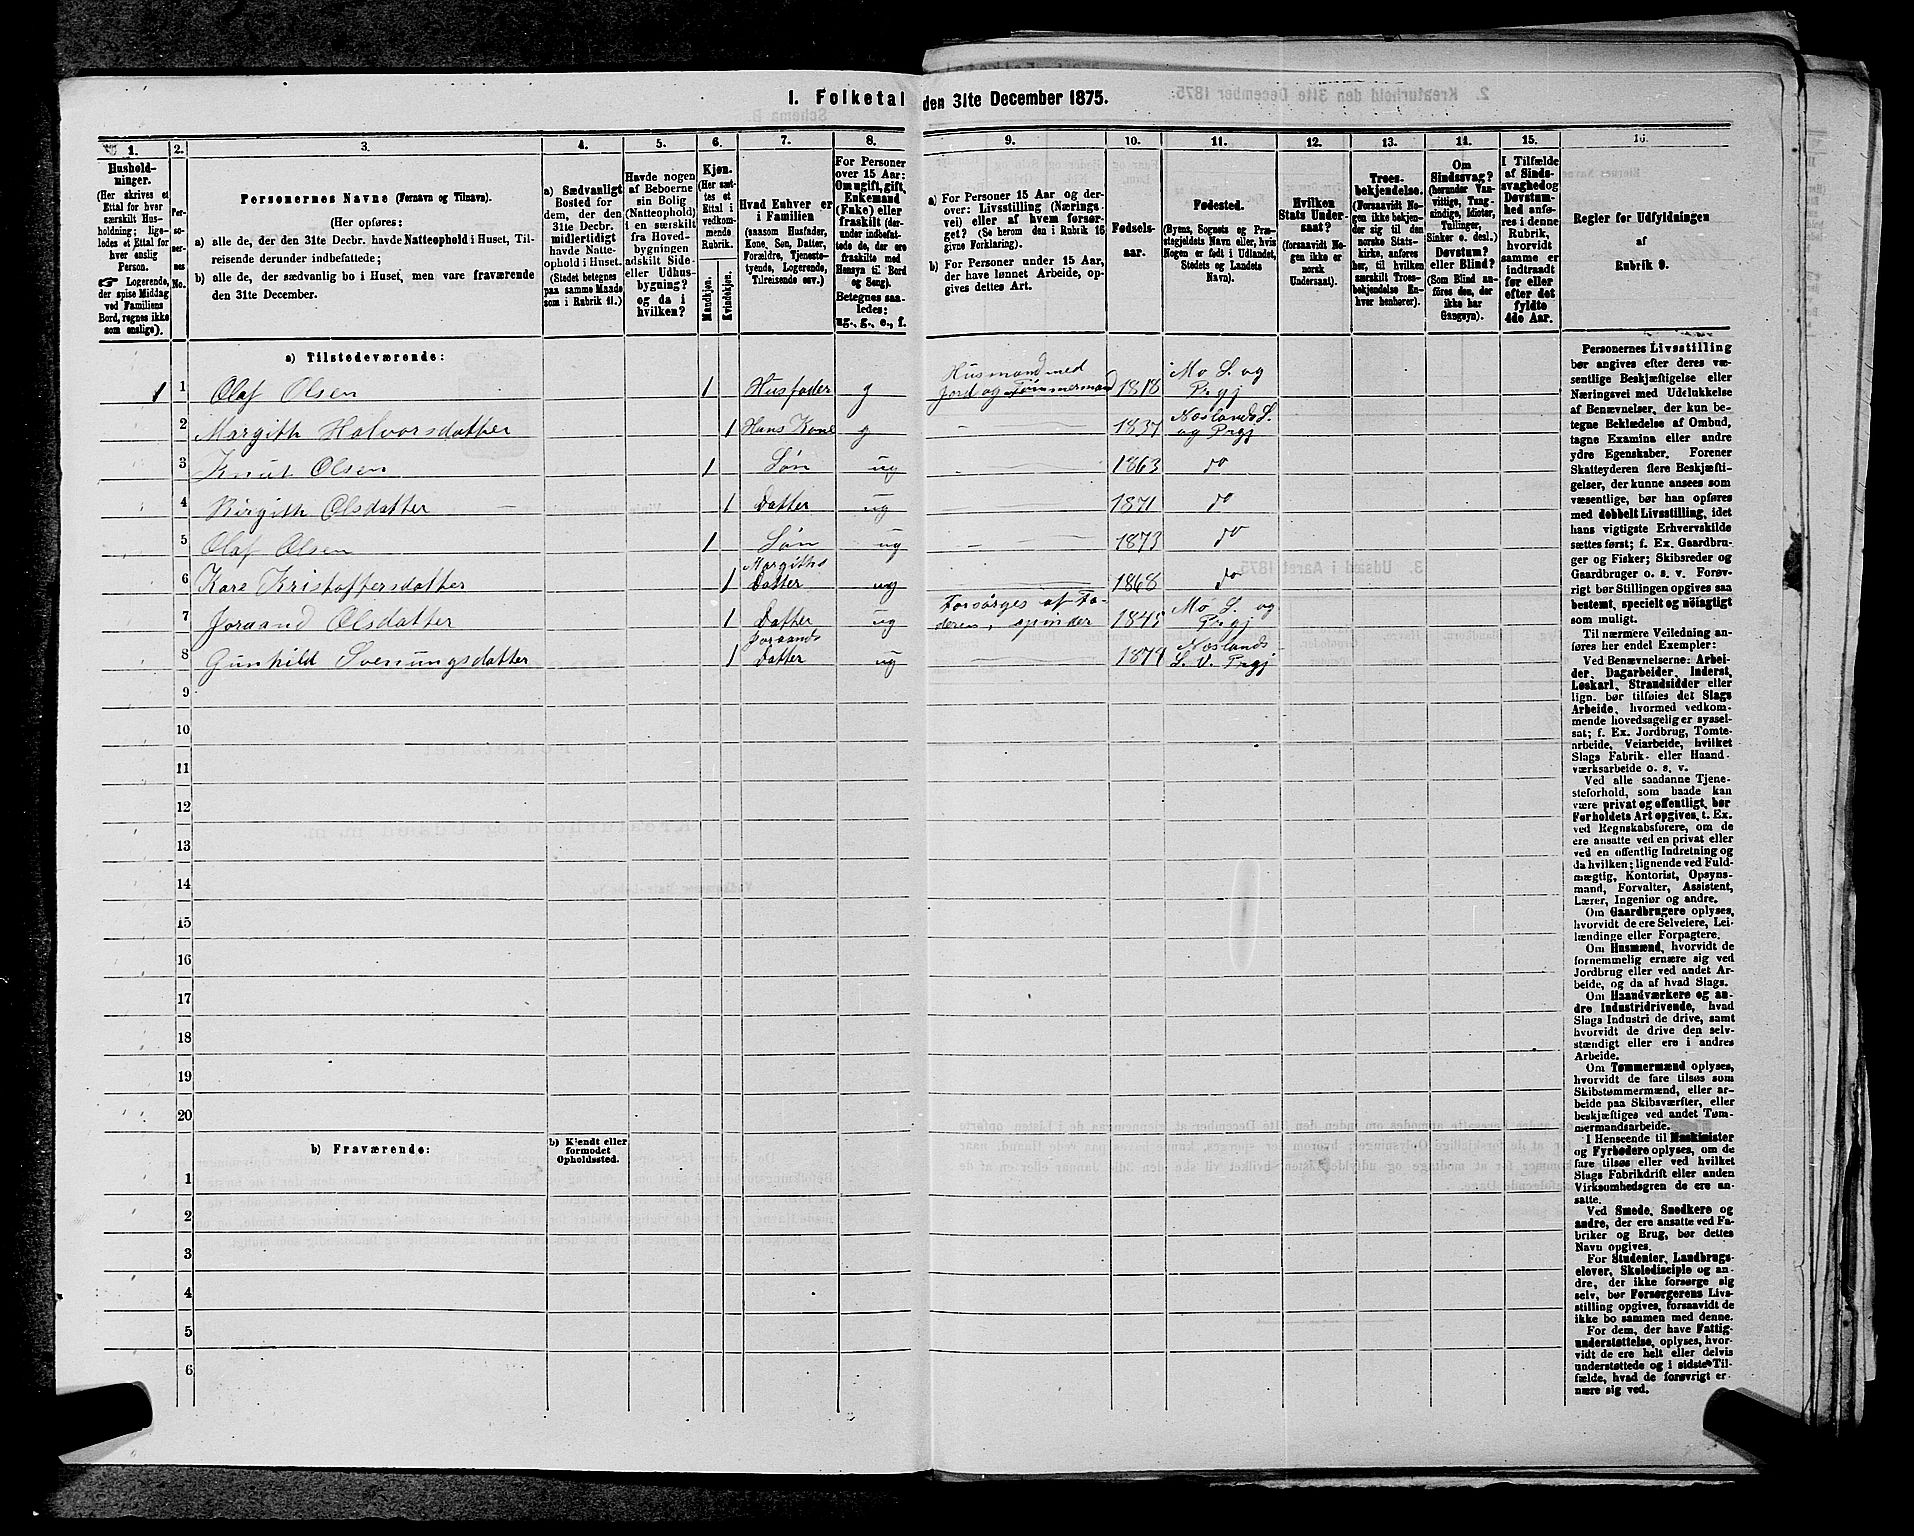 1. Folketal den 31te December 1875.
1. 2. 3. 4. 5. 6. 7. 8. 9. 10. 11. 12. 13. 14. 15. 16.
Hushold-
ninger.
(Her skrives et
Ettal for hver
særskilt Hus-
holdning; lige-
ledes et Ettal for
hver enslig
Person.
☞ Logerende,
der spise Middag
ved Familiens
Bord, regnes ikke
som enslige).
Per-
so-
ner-
nes
No.
Personernes Navne (Fornavn og Tilnavn).
(Her opføres:
a) alle de, der den 31te Decbr. havde Natteophold i Huset, Til-
reisende derunder indbefattede;
b) alle de, der sædvanlig bo i Huset, men vare fraværende
den 31te December.
a) Sædvanligt
Bosted for
dem, der den
31te Decbr.
midlertidigt
havde Natte-
ophold i Huset.
(Stedet betegnes
paa samme Maade
som i Rubrik 11.)
Havde nogen
af Beboerne
sin Bolig
(Natteophold)
i en særskilt
fra Hoved-
bygningen
adskilt Side-
eller Udhus-
bygning?
og da i
hvilken?
Kjøn.
(Her sæt-
tes et
Ettal i
vedkom-
mende
Rubrik.
Mandkjøn.
Kvindekjøn.
Hvad Enhver er
i Familien
(saasom Husfader,
Kone, Søn, Datter,
Forældre, Tjeneste-
tyende, Logerende,
Tilreisende osv.)
For Personer
over 15 Aar:
Om ugift, gift,
Enkemand
(Enke) eller
fraskilt (der-
under indbefat-
tede de, der ere
fraskilte med
Hensyn til Bord
og Seng).
Betegnes saa-
ledes:
ug., g., e., f.
a) For Personer 15 Aar og der-
over: Livsstilling (Nærings-
vei) eller af hvem forsør-
get? (Se herom den i Rubrik 16
givne Forklaring).
b) For Personer under 15 Aar,
der have lønnet Arbeide, op-
gives dettes Art.
Fødsels-
aar.
Fødested.
(Byens, Sognets og Præ-
stegjeldets Navn eller, hvis
Nogen er født i Udlandet,
Stedets og Landets
Navn).
Hvilken
Stats Under-
saat?
(forsaavidt No-
gen ikke er
norsk
Undersaat).
Troes-
bekjendelse.
(Forsaavidt No-
gen ikke bekjen-
der sig til den
norske Stats-
kirke, anføres
her, til hvilken
særskilt Troes-
bekjendelse En-
hver henhører).
Om
Sindssvag?
(herunder Van-
vittige, Tung-
sindige, Idioter,
Tullinger,
Sinker o. desl.)
Døvstum?
eller Blind?
(Som Blind an-
føres den, der
ikke har
Gangsyn).
I Tilfælde
af Sinds-
svaghed og
Døvstum-
hed anfø-
res i denne
Rubrik,
hvorvidt
samme er
indtraadt
før eller
efter det
fyldte
4de Aar.
Regler for Udfyldningen
af
Rubrik 9.
a) Tilstedeværende:
1 1 Olaf Olsen 1 Husfader g Husmand med Jord og Tømmermand 1818 Mo S. og Prgj
2 Margith Halvorsdatter 1 Hans Kone g — 1837 Næslands S. og Prgj
3 Knut Olsen 1 Søn ug — 1863 do
4 Birgith Olsdatter 1 Datter ug — 1871 do
5 Olaf Olsen 1 Søn ug — 1873 do
6 Kare Kristoffersdatter 1 Margiths Datter ug — 1868 do
7 Joraand Olsdatter 1 Datter ug Forsørges af Faderen, spinder 1845 Mo S. og Prgj
8 Gunhild Svenungsdatter 1 Joraands Datter ug — 1874 Næslands S. V. Prgj
9
10
11
12
13
14
15
16
17
18
19
20
b) Fraværende:
b) Kjendt eller
formodet
Opholdssted.
1
2
3
4
5
6
Personernes Livsstilling
bør angives efter deres væ-
sentlige Beskjæftigelse eller
Næringsvei med Udelukkelse
af Benævnelser, der kun be-
tegne Beklædelse af Ombud,
tagne Examina eller andre
ydre Egenskaber. Forener
Skatteyderen flere Beskjæfti-
gelser, der kunne ansees som
væsentlige, bør han opføres
med dobbelt Livsstilling, idet
hans vigtigste Erhvervskilde
sættes først; f. Ex. Gaardbru-
ger og Fisker; Skibsreder og
Gaardbruger o. s. v. Forøv-
rigt bør Stillingen opgives saa
bestemt, specielt og nøiagtigt
som muligt.
Til nærmere Veiledning an-
føres her endel Exempler:
Ved Benævnelserne: Arbei-
der, Dagarbeider, Inderst,
Løskarl, Strandsidder eller
lign. bør tilføies det Slags
Arbeide, hvormed vedkom-
mende hovedsagelig er syssel-
sat; f. Ex. Jordbrug, Tomte-
arbeide, Veiarbeide, hvilket
Slags Fabrik- eller Haand-
værksarbeide o. s. v.
Ved alle saadanne Tjene-
steforhold, som baade kan
være privat og offentligt, bør
Forholdets Art opgives, t. Ex.
ved Regnskabsførere, om de
ere ansatte ved en privat eller
ved en offentlig Indretning og
da hvilken; lignende ved Fuld-
mægtig, Kontorist, Opsyns-
mand, Forvalter, Assistent,
Lærer, Ingeniør og andre.
Om Gaardbrugere oplyses,
hvorvidt de ere Selveiere, Lei-
lændinge eller Forpagtere.
Om Husmænd, hvorvidt de
fornemmelig ernære sig ved
Jordbrug eller ved andet Ar-
beide, og da af hvad Slags.
Om Haandværkere og an-
dre Industridrivende, hvad
Slags Industri de drive, samt
hvorvidt de drive den selv-
stændigt eller ere i andres
Arbeide.
Om Tømmermænd oplyses,
hvorvidt de fare tilsøs som
Skibstømmermænd, eller ar-
beide paa Skibsværfter, eller
beskjæftiges ved andet Tøm-
mermandsarbeide.
I Henseende til Maskinister
og Fyrbødere oplyses, om de
fare tilsøs eller ved hvilket
Slags Fabrikdrift eller anden
Virksomhedsgren de ere an-
satte.
Ved Smede, Snedkere og
andre, der ere ansatte ved Fa-
briker og Brug, bør dettes
Navn opgives.
For Studenter, Landbrugs-
elever, Skoledisciple og an-
dre, der ikke forsørge sig
selv, bør Forsørgerens Livs-
stilling opgives, forsaavidt de
ikke bo sammen med denne.
For dem, der have Fattig-
understøttelse, oplyses, hvor-
vidt de ere helt eller delvis
understøttede og i sidste Til-
fælde, hvad de forøvrigt er-
nære sig ved.